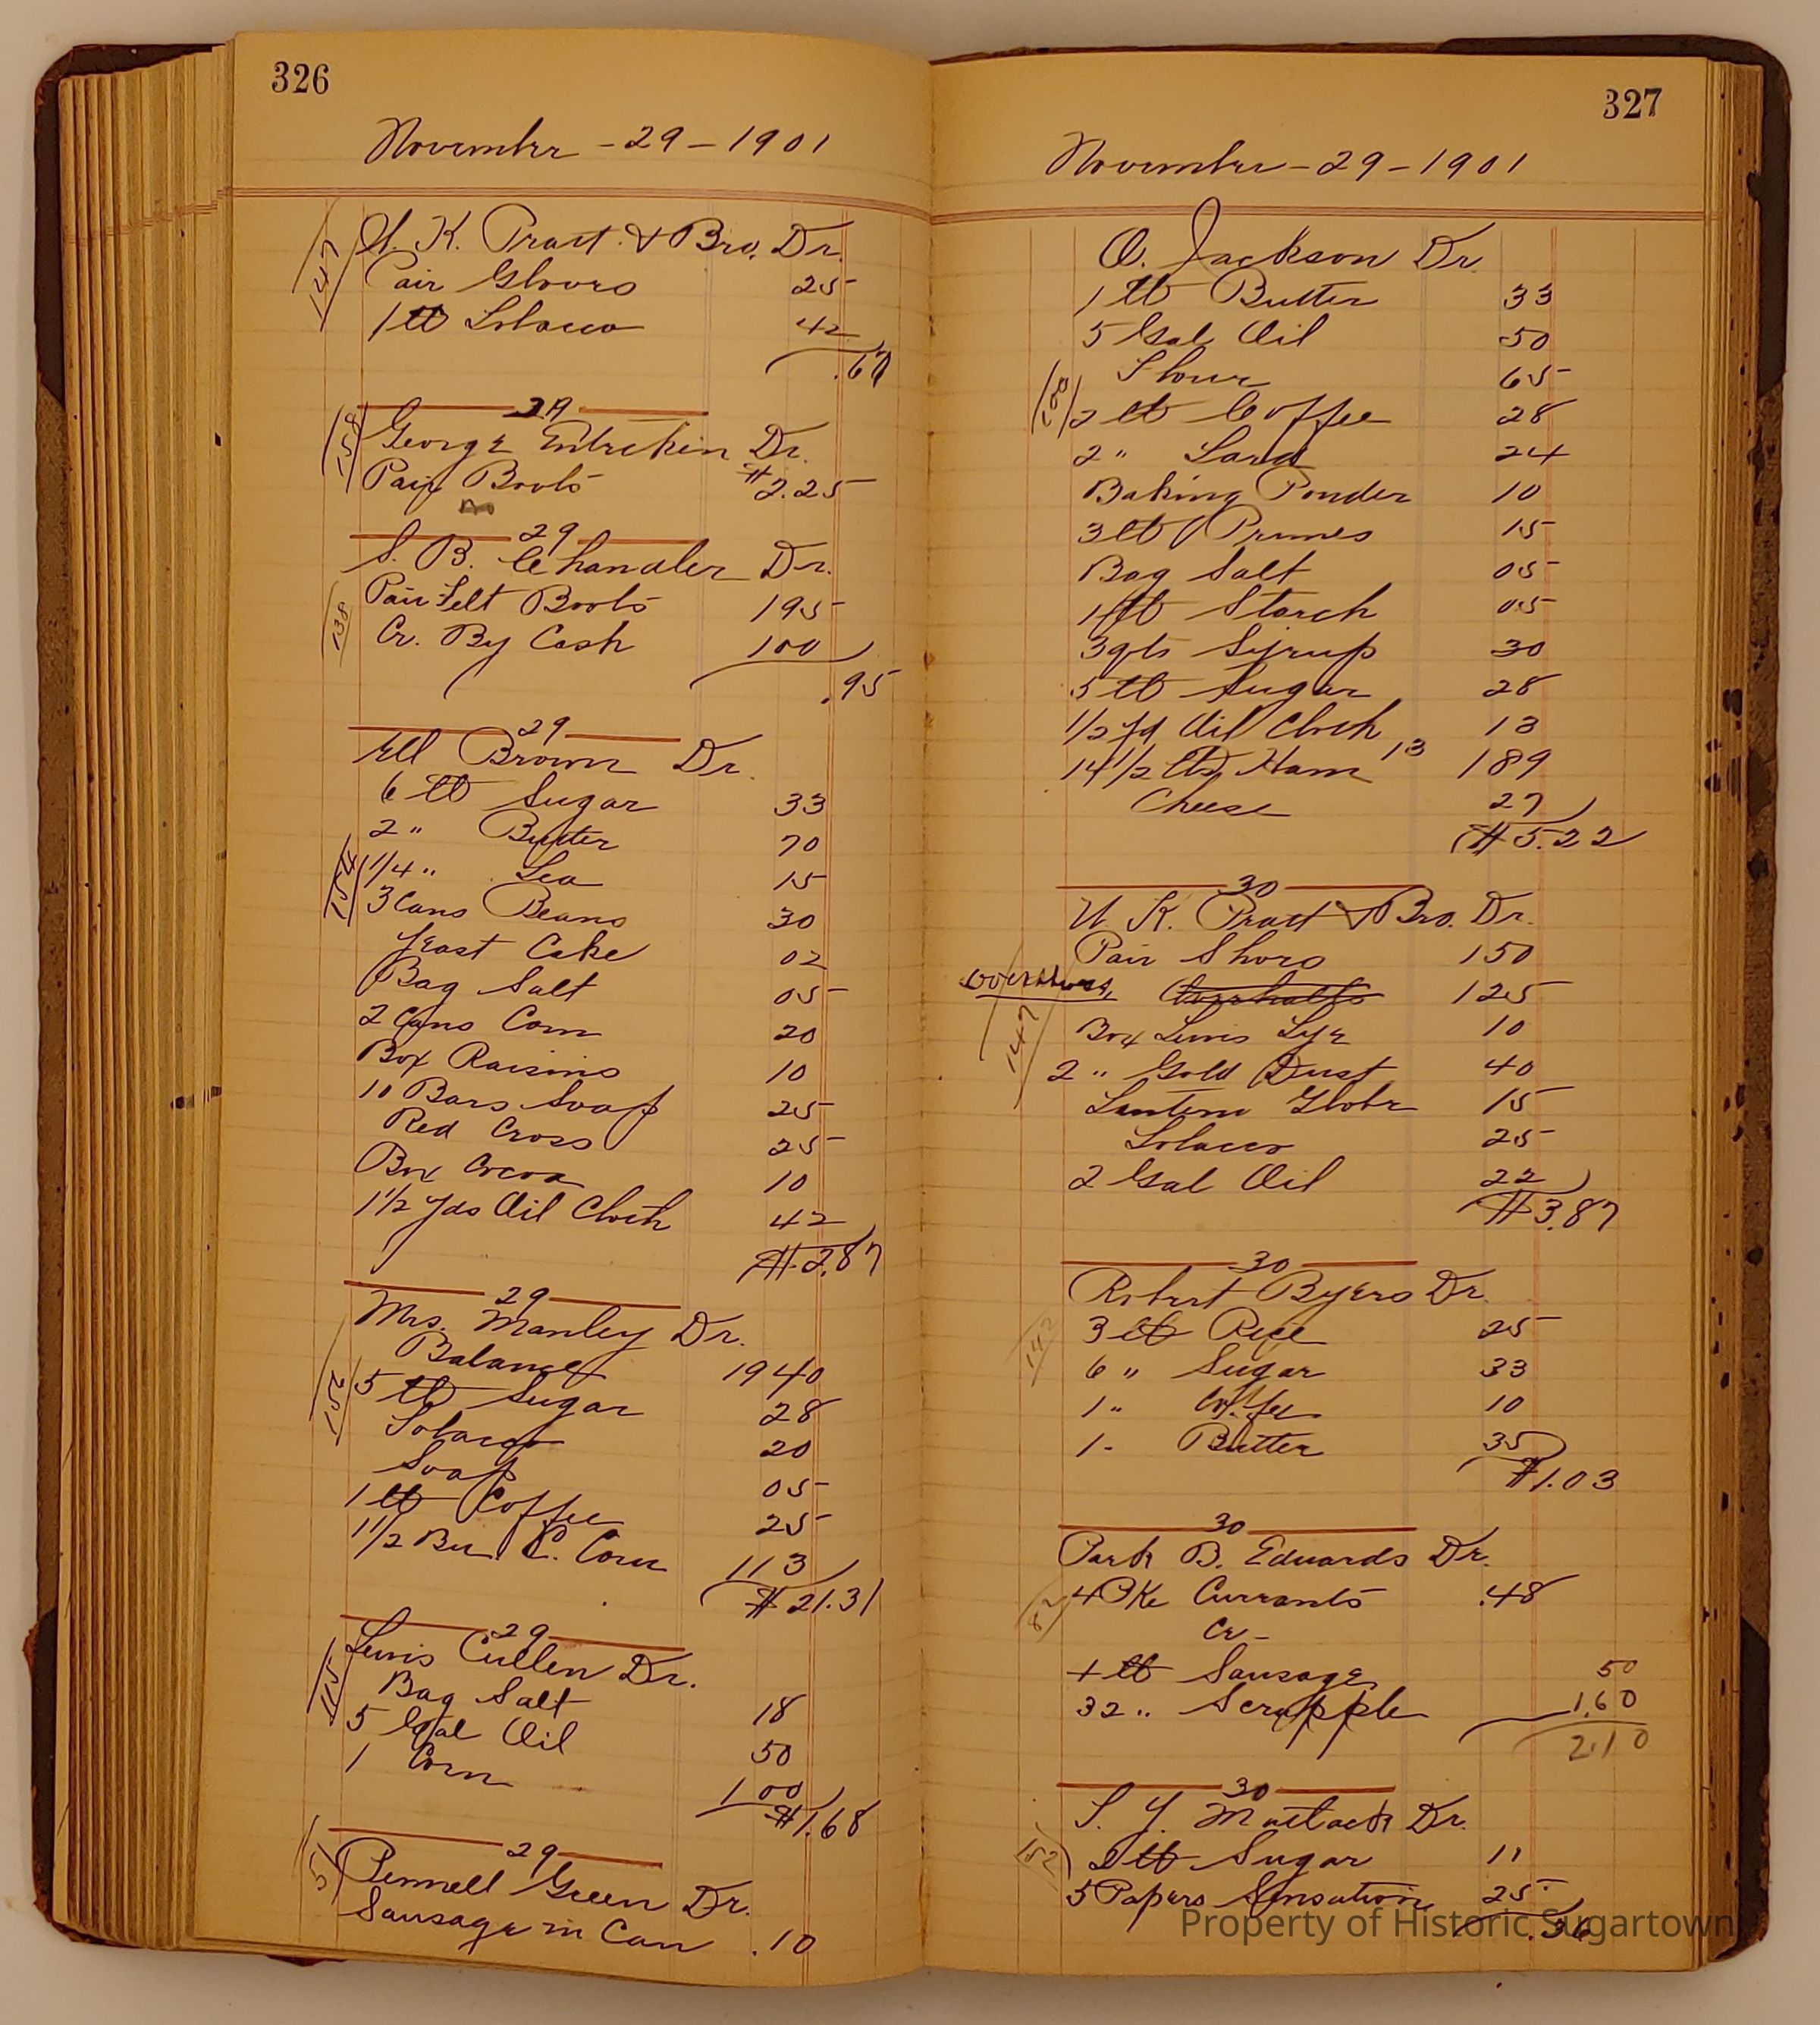 326
November - 29 - 1901
147
W. K. Pratt & Bro. Dr.
Pair Gloves 25
1 lb Tobacco 42
.67
29
158
George Entrekin Dr.
Pair Boots $2.25
29
S. B. Chandler Dr.
138
Pair Felt Boots 195
Cr. By Cash 100
.95
29
Ell Brown Dr.
6 lb Sugar 33
2 " Butter 70
154
1/4 " Tea 15
3 Cans Beans 30
Yeast Cake 02
Bag Salt 05
2 Cans Corn 20
Box Raisins 10
10 Bars Soap 25
Red Cross 25
Box Cocoa 10
1 1/2 Yds Oil Cloth 42
$2.87
29
Mrs. Manley Dr.
Balance 1940
156
5 lb Sugar 28
Tobacco 20
Soap 05
1 lb Coffee 25
1 1/2 Bu. C. Corn 113
$21.31
29
Lewis Cullen Dr.
115
Bag Salt 18
5 Gal Oil 50
1 Corn 100
$1.68
29
51
Pennell Green Dr.
Sausage in Can .10
327
November - 29 - 1901
O. Jackson Dr
1 lb Butter 33
5 Gal Oil 50
Flour 65
100
2 lb Coffee 28
2 " Lard 24
Baking Powder 10
3 lb Prunes 15
Bag Salt 05
1 lb Starch 05
3 qts Syrup 30
5 lb Sugar 28
1/2 yd Oil Cloth 13
14 1/2 lbs Ham 13 189
Cheese 27
$5.22
30
W. K. Pratt & Bro. Dr.
Pair Shoes 150
Overshoes, Overhalls 125
147
Box Lewis Lye 10
2 " Gold Dust 40
Lantern Globe 15
Tobacco 25
2 Gal Oil 22
$3.87
30
Robert Byers Dr
142
3 lb Rice 25
6 " Sugar 33
1 " Coffee 10
1 - Butter 35
$1.03
30
Park B. Edwards Dr.
82
4 PKe Currants .48
Cr -
4 lb Sausage 50
32 " Scrapple 1.60
2.10
30
S. Y. Matlack Dr.
152
2 lb Sugar 11
5 Papers Sensation 25
.36
Property of Historic Sugartown